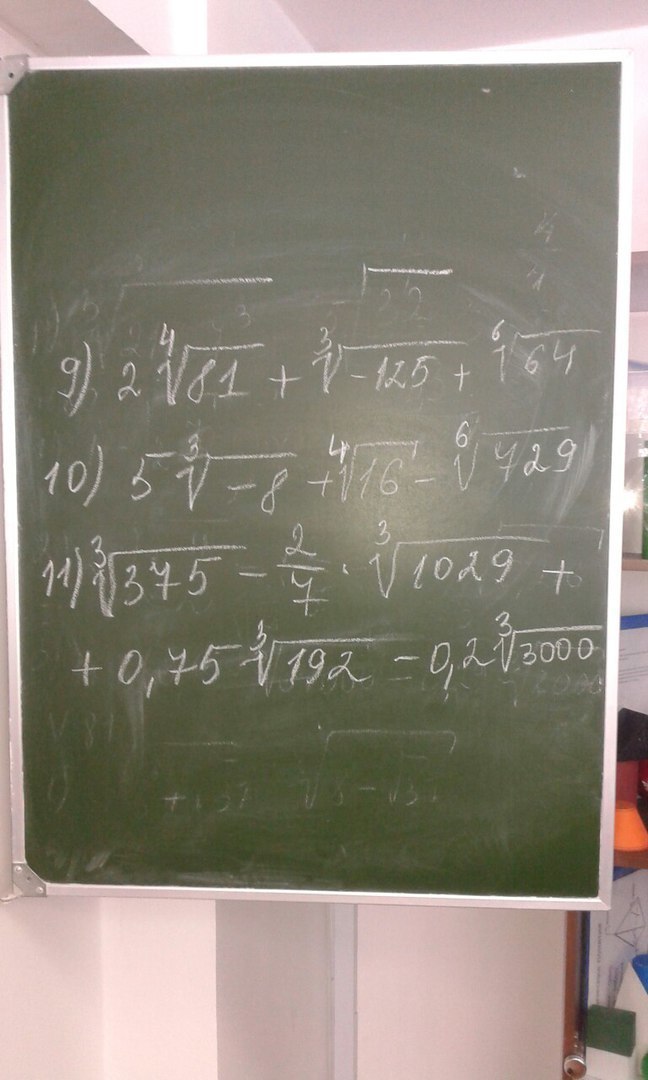 9) 2 ∜81 + ∛-125 + ⁶√64
10) 5 ∛-8 + ∜16 - ⁶√729
11) ∛375 - 2/7 · ∛1029 +
+ 0,75 ∛192 - 0,2 ∛3000